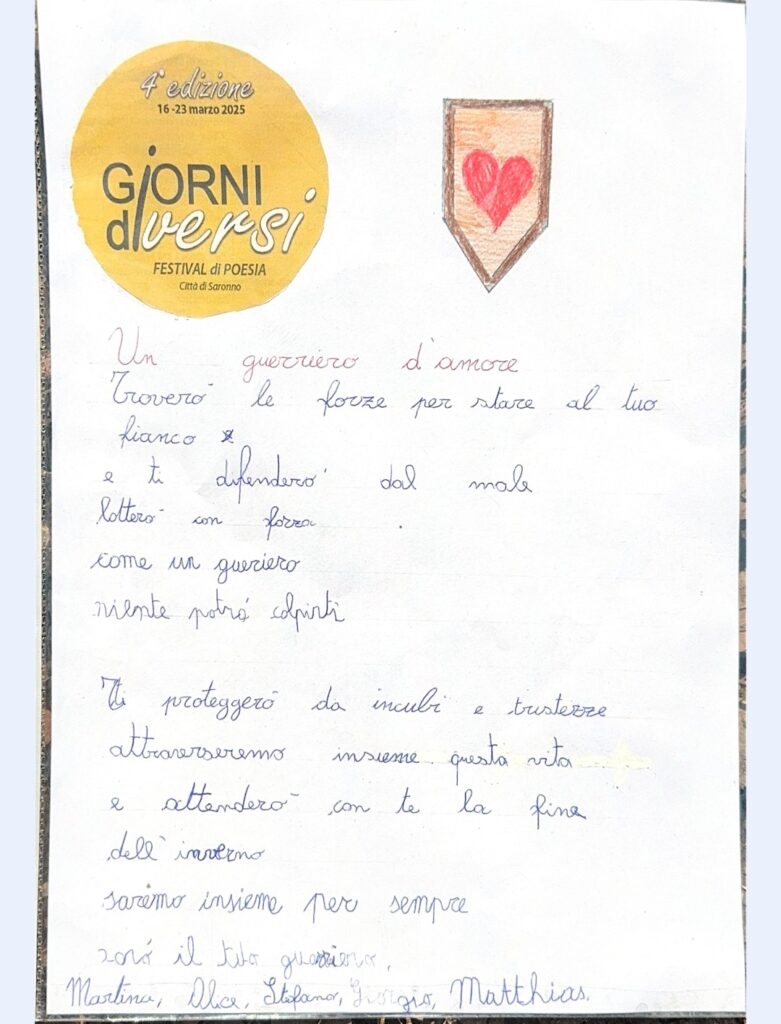 4ª edizione
16-23 marzo 2025
GiORNI
diversi
FESTIVAL di POESIA
Città di Saronno
Un guerriero d'amore
Troverò le forze per stare al tuo
fianco
e ti difenderò dal male
lotterò con forza
come un gueriero
niente potrà colpirti
Ti proteggerò da incubi e tristezze
attraverseremo insieme questa vita
e attenderò con te la fine
dell'inverno
saremo insieme per sempre
sarò il tuo guerriero,
Martina, Alice, Stefano, Giorgio, Matthias.